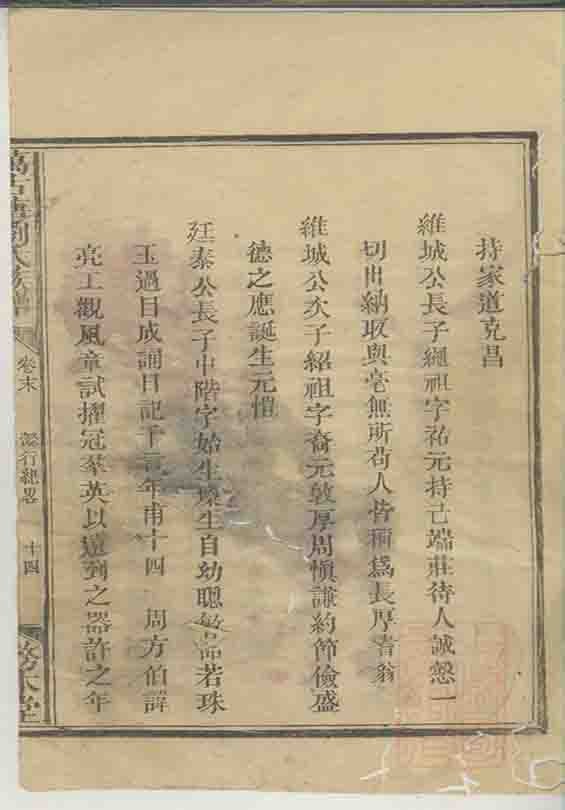 持家道克昌
維城公長子繩祖字祐元持己端莊待人誠慤一
切出納取與毫無所苟人皆稱爲長厚者翁
維城公次子紹祖字裔元敦厚周慎謙約節儉盛
德之應誕生元愷
廷泰公長子中階字始生 生自幼聰 若珠
玉過目成誦日記千言年甫十四 周方伯諱
亮工觀風童試擢冠羣英以遠到之器許之年
劉氏族譜
卷末
懿行紀畧
十四
務本堂